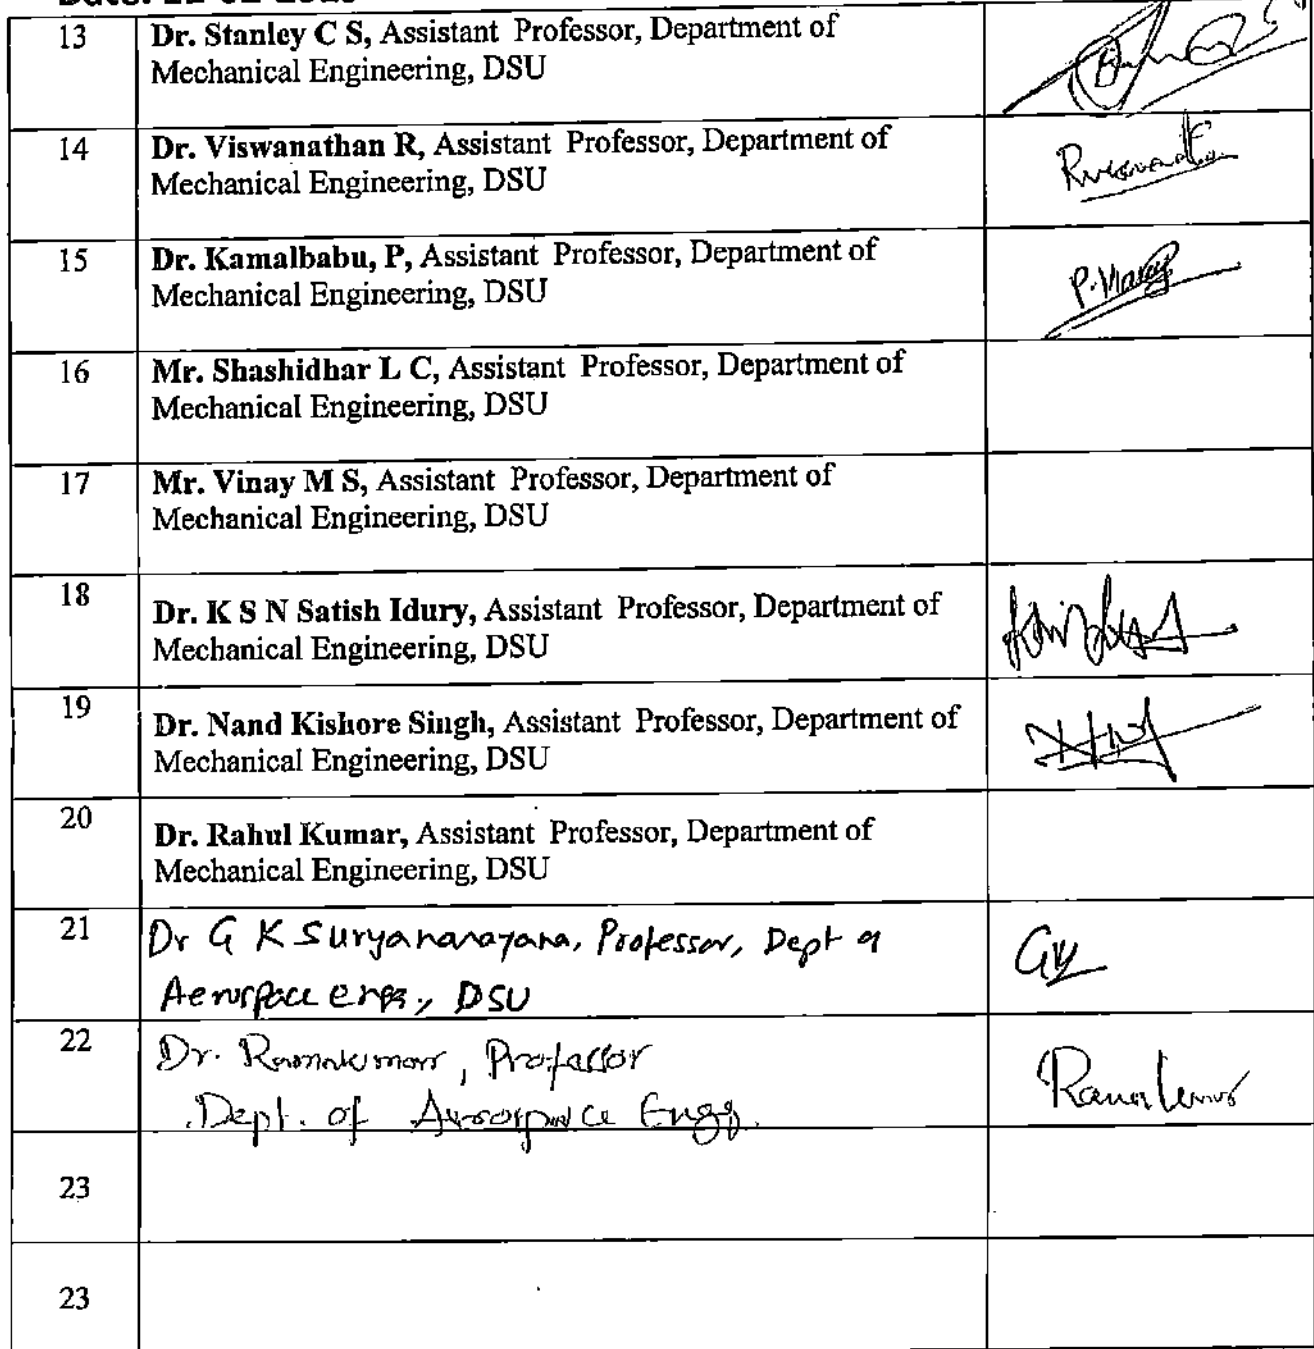 13
Dr. Stanley C S, Assistant Professor, Department of
Mechanical Engineering, DSU
14
Dr. Viswanathan R, Assistant Professor, Department of
Mechanical Engineering, DSU
15
Dr. Kamalbabu, P, Assistant Professor, Department of
Mechanical Engineering, DSU
16
Mr. Shashidhar L C, Assistant Professor, Department of
Mechanical Engineering, DSU
17
Mr. Vinay M S, Assistant Professor, Department of
Mechanical Engineering, DSU
18
Dr. K S N Satish Idury, Assistant Professor, Department of
Mechanical Engineering, DSU
19
Dr. Nand Kishore Singh, Assistant Professor, Department of
Mechanical Engineering, DSU
20
Dr. Rahul Kumar, Assistant Professor, Department of
Mechanical Engineering, DSU
21
Dr G K Suryanarayana, Professor, Dept of
Aerospace Engg, DSU
22
Dr. Ramakumar, Professor
Dept. of Aerospace Engg.
23
23